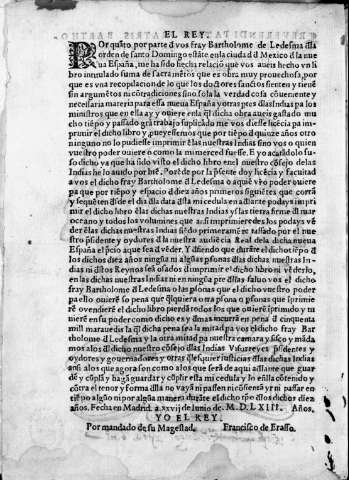 EL REY.
POr quāto por parte d̄ vos fray Bartholome de Ledesma d̄la
orden de santo Domingo estāte en la ciuda d̄ d̄ Mexico d̄la nue
ua España, me ha sido hecha relaciō que vos aueis hecho vn li
bro intitulado suma de sacramētos que es obra muy prouechosa, por
que es vna recopilacion de lo que los doctores sanctos sienten y tienē
sin argumētos ni cōtradiciones sino sola la verdad cosa cōueniente y
necessaria materia para essa nueua España y otras ptes d̄las Indias pa los
ministros que en ella ay y q̄ uiere en la q̄l dicha obra aueis gastado mu
cho tiēpo y passado grā trabajo suplicado me vos diesse licēcia pa im
primir el dicho libro y pueyessemos que por tiēpo d̄ quinze años otro
ninguno no lo pudiesse imprimir ēlas nuestras Indias sino vos o quien
vuestro poder ouiere o como la mi merced fuesse. E yo acatādolo su-
so dicho ya que ha sido visto el dicho libro en el nuestro cōsejo delas
Indias he lo auido por biē. Porēde por la p̄sente doy licēcia y facultad
a vos el dicho fray Bartholome d̄ Ledesma o aquel vr̄o poder ouiere
pa que por tiēpo y espacio d̄ diez años primeros siguiētes que corrā
y se quenten dēsde el dia d̄la data d̄sta mi cedula en adlante podays impri
mir el dicho libro ēlas dichas nuestras Indias yslas tierra firme d̄l mar
oceano y todos los volumines que assi imprimierēdes los podays vē
der ēlas dichas nuestras Indias siēdo primeramēte tassado por el nue
stro p̄sidente y oydores d̄la nuestra audiēcia Real dela dicha nueua
España el p̄cio aque sea d̄ vēder. Y d̄fiendo que durāte el dicho tiēpo d̄
los dichos diez años ningūa ni algūas psonas d̄las dichas nuestras In-
dias ni d̄stos Reynos seā osados d̄ imprimir el dicho libro ni vēderlo,
en las dichas nuestras Indias ni en ningūa pte d̄llas saluo vos el dicho
fray Bartholome d̄ Ledesma o las psonas que el dicho vuestro poder
pa ello ouierē so pena que q̄lquiera otra psona o psonas que īprimie
rē o vendierē el dicho libro pierdā todos los que ouierē īprimido y tu
nierē en su poder como dicho es y d̄mas incurra en pena d̄ cinquenta
mill marauedis la q̄l dicha pena sea la mitad pa vos el dicho fray Bar
tholome d̄ Ledesma y la otra mitad pa nuestra camara y fisco y māda
mos alos d̄l dicho nuestro cōsejo d̄las Indias Visurreyes p̄sidentes y
oydores y gouernadores y otras q̄lesquier justicias d̄las dichas Indias
assi alos que agora son como alos que serā de aqui adlante que guar
dē y cūplā y hagā guardar y cūplir esta mi cedula y lo en ella cōtenido y
cōtra el tenor y forma d̄lla no vayā ni passen ni cōsientā yr ni passar en
tiēpo algūo ni por algūa manera durāte el dicho tpo d̄los dichos diez
años. Fecha en Madrid. a .xxvij de Iunio de. M.D.LXIII. Años.
YO EL REY.
Por mandado de su Magestad. Francisco de Erasso.